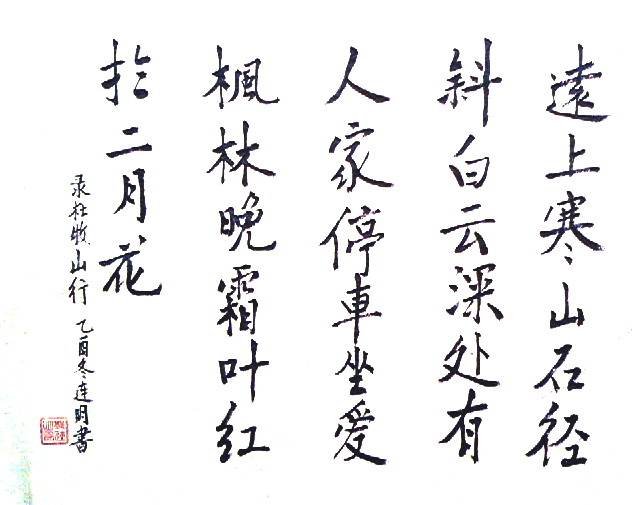 遠上寒山石径
斜白云深处有
人家停車坐愛
楓林晚霜叶红
於二月花
录杜牧山行 乙酉冬連明書